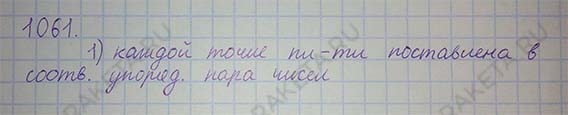 1061.
1) каждой точке пл-ти поставлена в
соотв. упоряд. пара чисел
RAKETA.RU